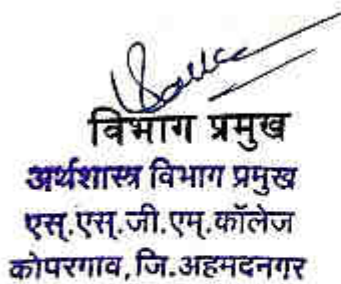 विभाग प्रमुख
अर्थशास्त्र विभाग प्रमुख
एस्.एस्.जी.एम्.कॉलेज
कोपरगाव, जि.अहमदनगर